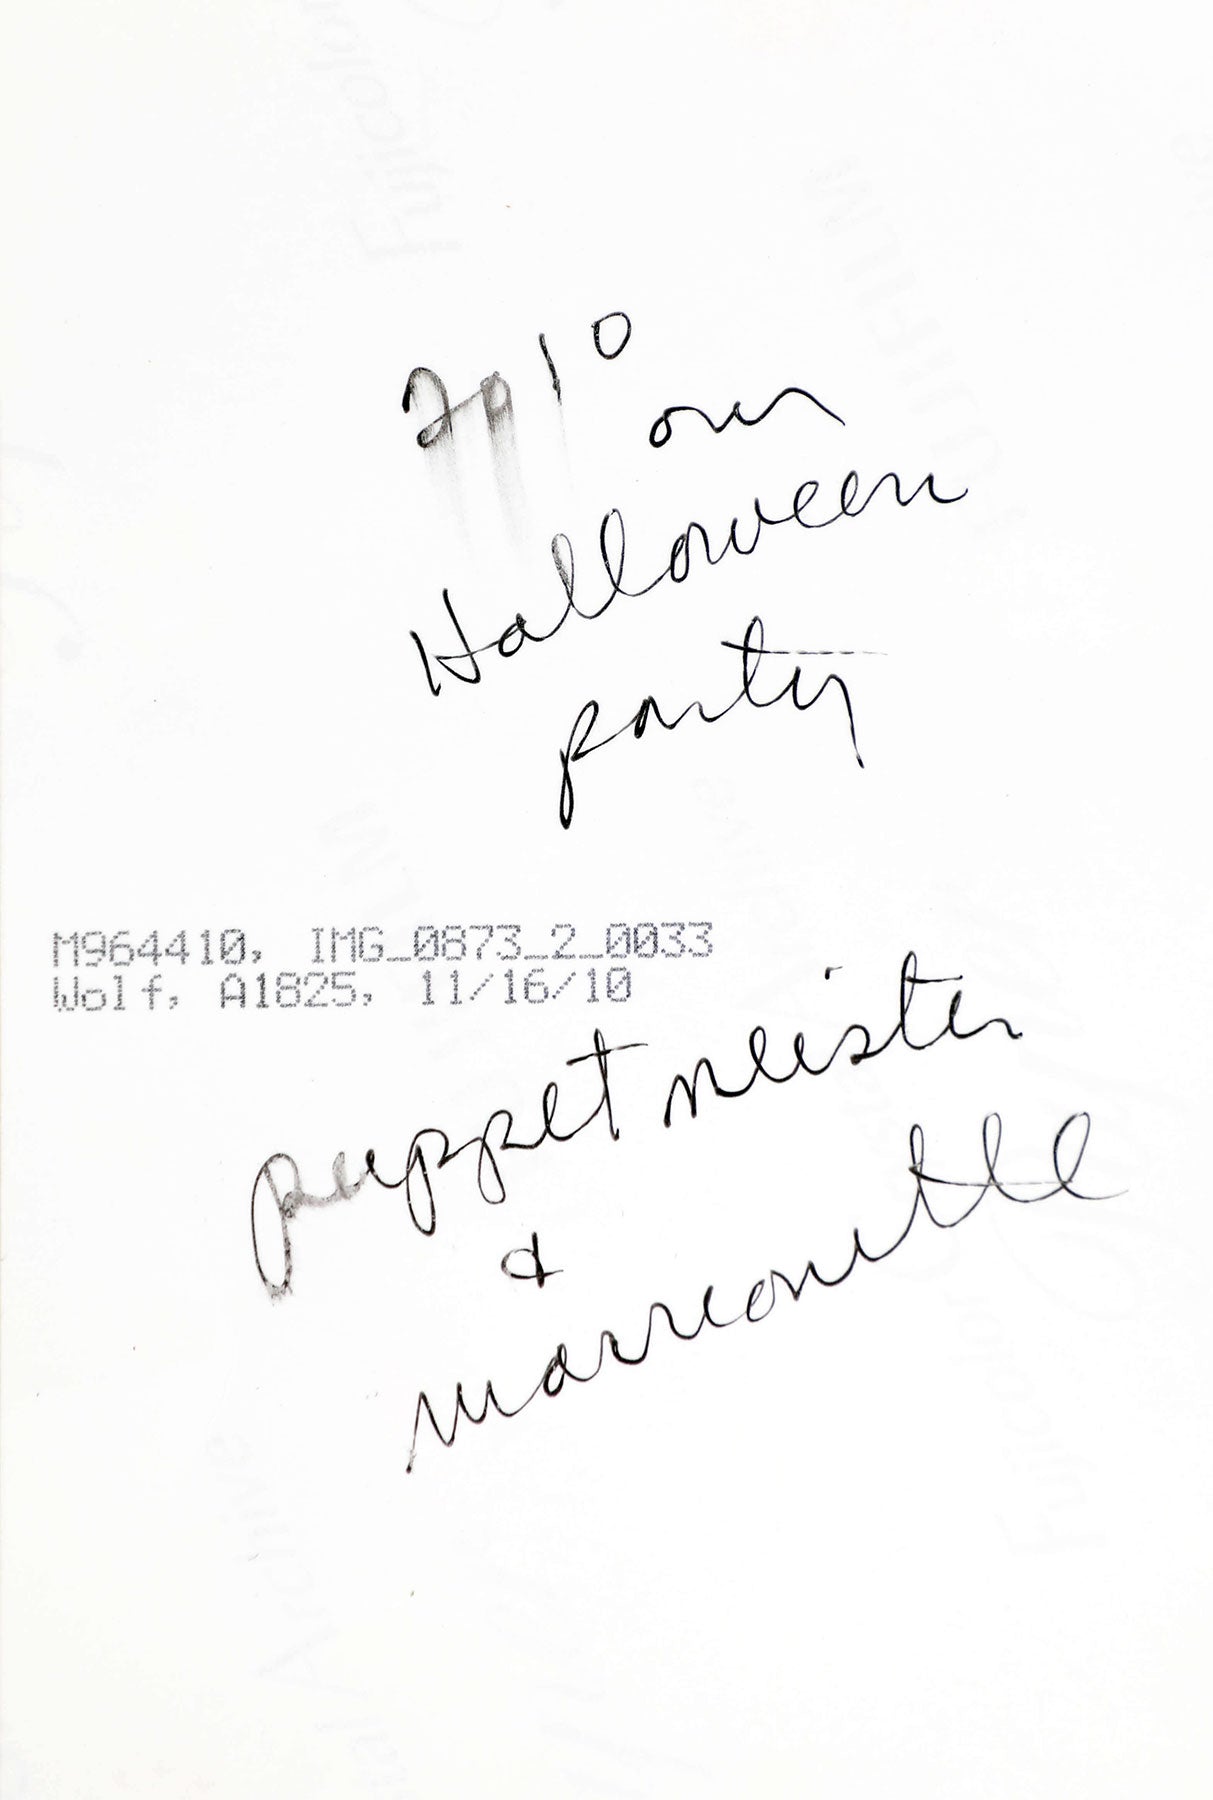 2010
our
Halloween
party
M964410, IMG_0873_2_0033
Wolf, A1825, 11/16/10
puppet meister
&
marreonette